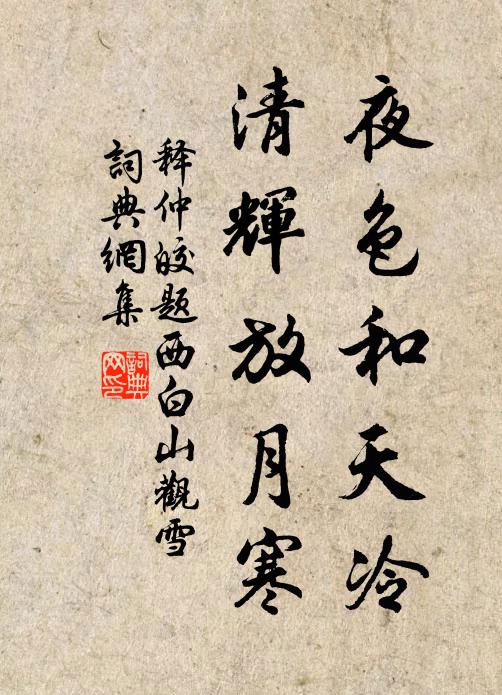 夜色和天冷
清輝放月寒
释仲皎题西白山觀雪
詞典網集
詞典网印